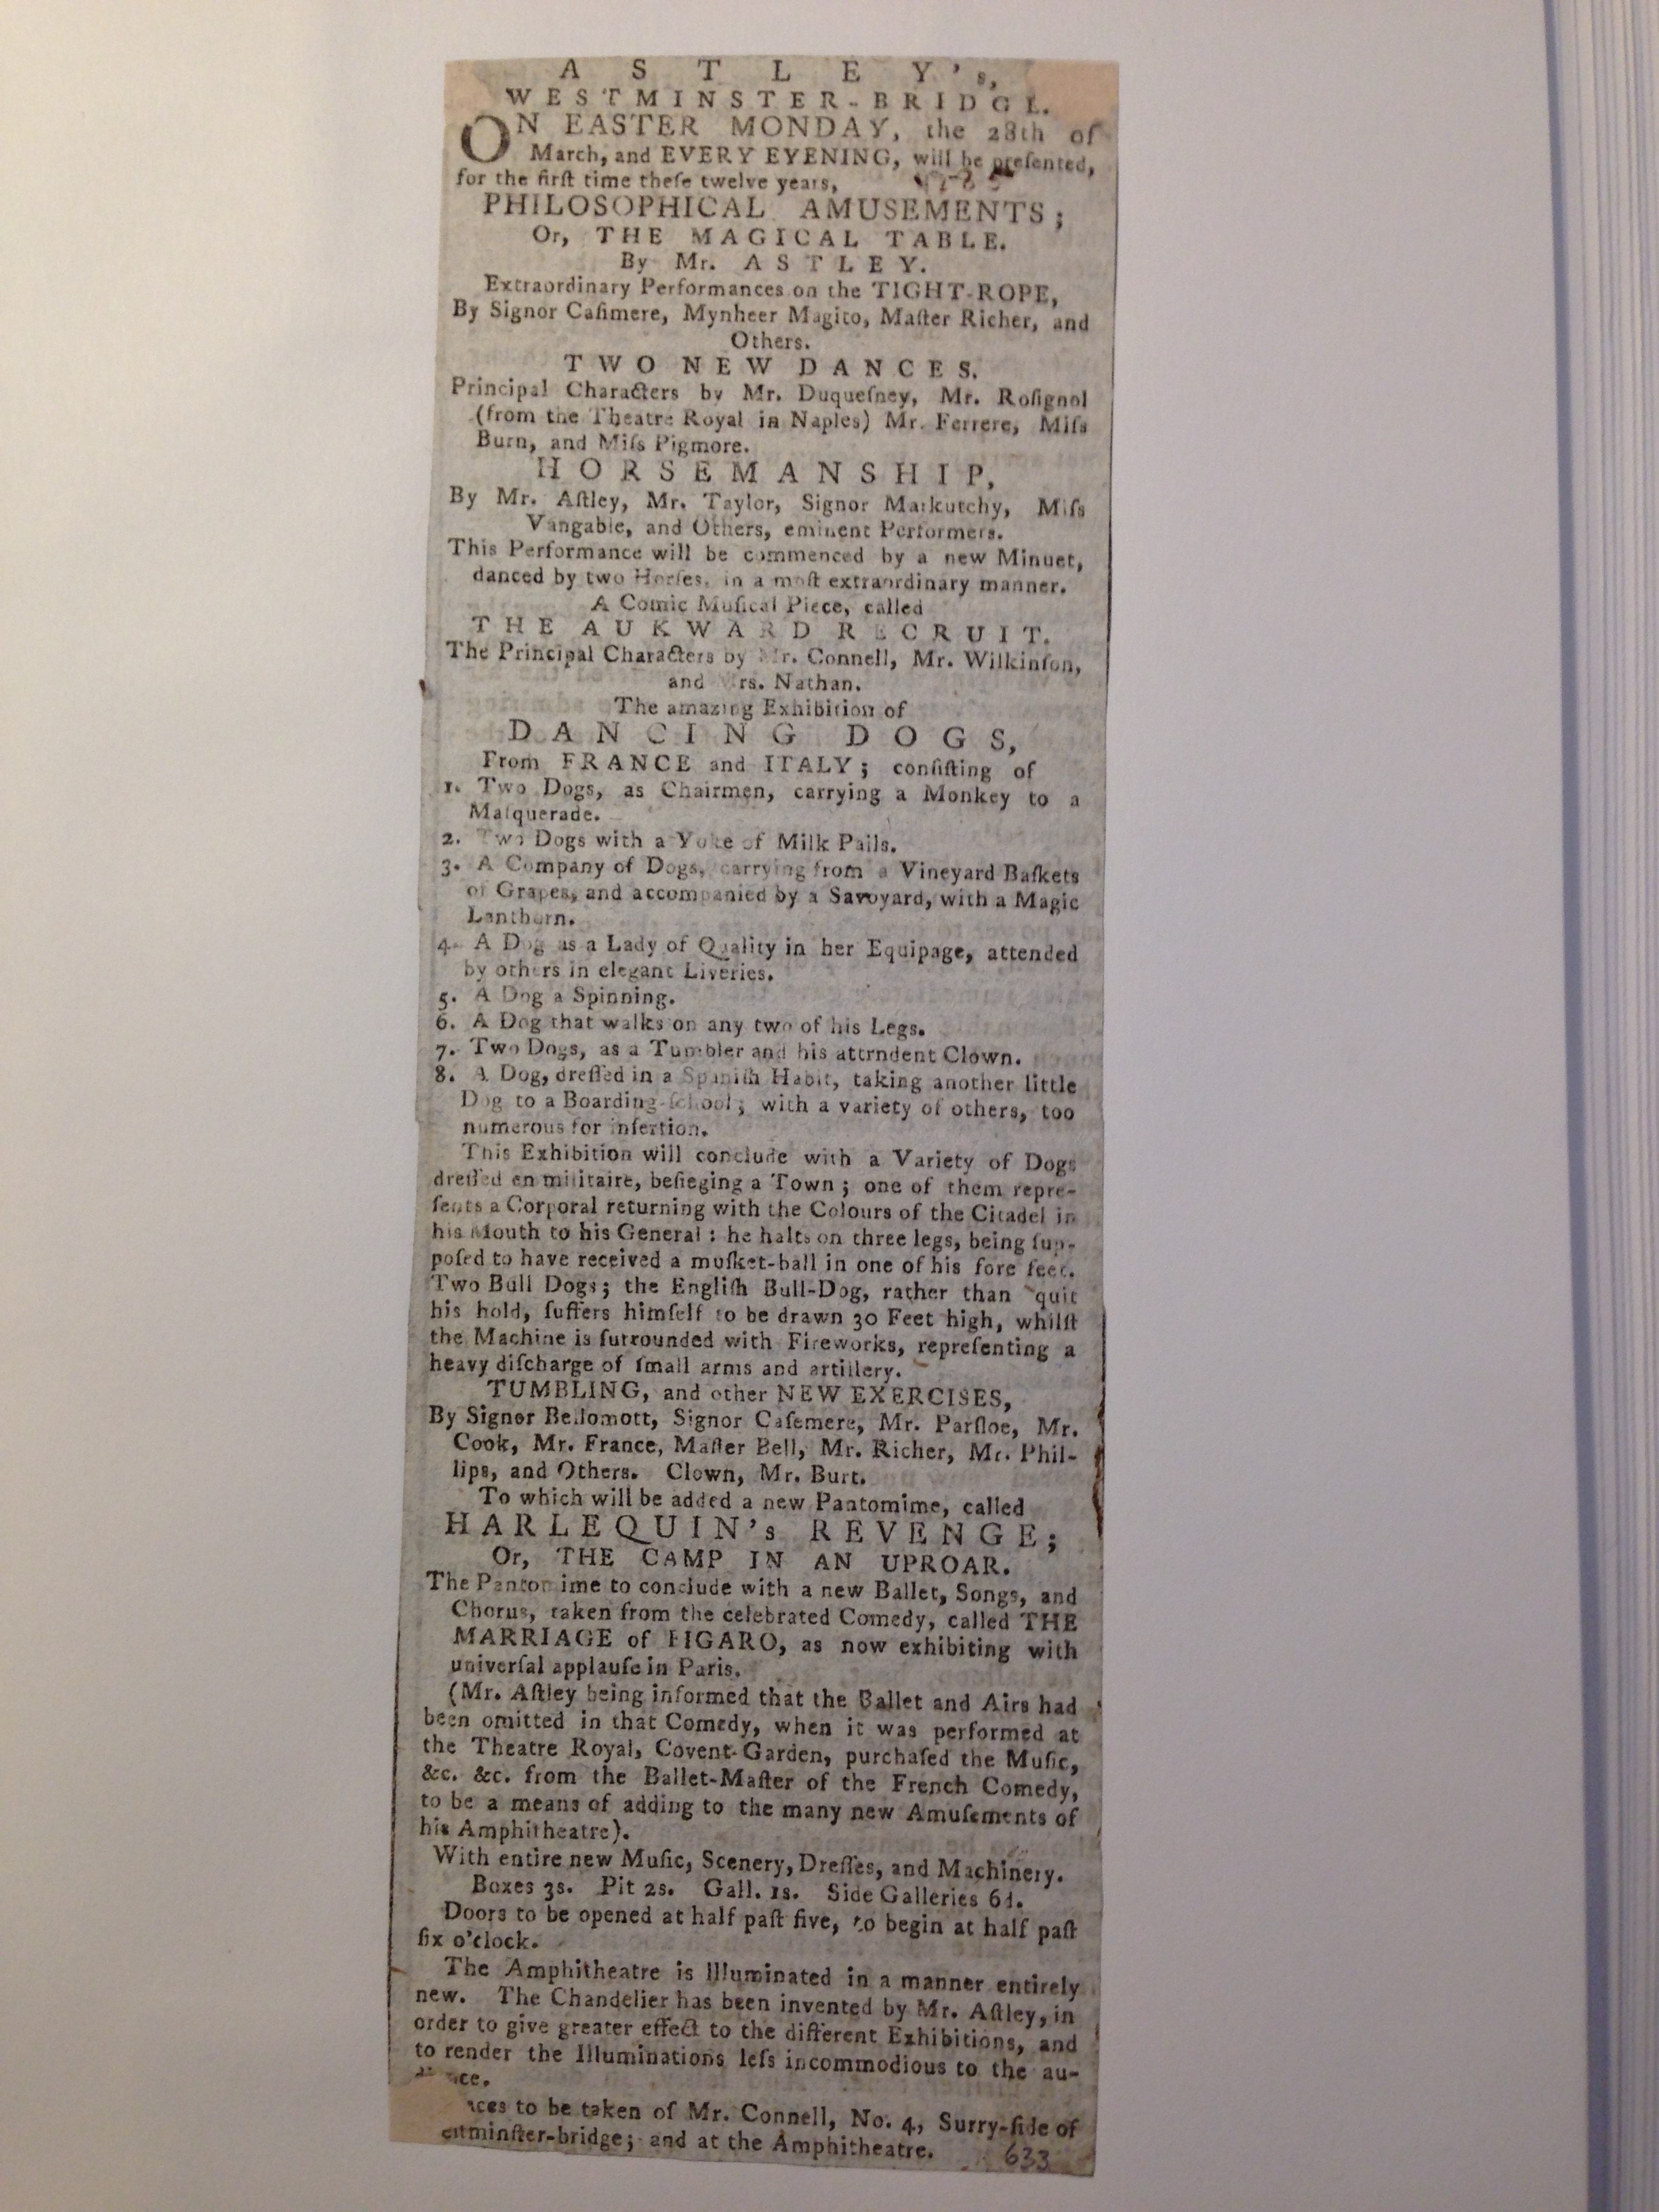 ASTLEY's,
WESTMINSTER-BRIDGE.
ON EASTER MONDAY, the 28th of
March, and EVERY EYENING, will be preſented,
for the firſt time theſe twelve years, 1785
PHILOSOPHICAL AMUSEMENTS;
Or, THE MAGICAL TABLE.
By Mr. ASTLEY.
Extraordinary Performances on the TIGHT-ROPE,
By Signor Caſimere, Mynheer Magito, Maſter Richer, and
Others.
TWO NEW DANCES.
Principal Characters by Mr. Duqueſney, Mr. Roſignol
(from the Theatre Royal in Naples) Mr. Ferrere, Miſs
Burn, and Miſs Pigmore.
HORSEMANSHIP,
By Mr. Aſtley, Mr. Taylor, Signor Markutchy, Miſs
Vangable, and Others, eminent Performers.
This Performance will be commenced by a new Minuet,
danced by two Horſes, in a moſt extraordinary manner.
A Comic Muſical Piece, called
THE AUKWARD RECRUIT.
The Principal Characters by Mr. Connell, Mr. Wilkinſon,
and Mrs. Nathan.
The amazing Exhibition of
DANCING DOGS,
From FRANCE and ITALY; conſiſting of
1. Two Dogs, as Chairmen, carrying a Monkey to a
Maſquerade.
2. Two Dogs with a Yoke of Milk Pails.
3. A Company of Dogs, carrying from a Vineyard Baſkets
of Grapes, and accompanied by a Savoyard, with a Magic
Lanthorn.
4. A Dog as a Lady of Quality in her Equipage, attended
by others in elegant Liveries.
5. A Dog a Spinning.
6. A Dog that walks on any two of his Legs.
7. Two Dogs, as a Tumbler and his attrndent Clown.
8. A Dog, dreſſed in a Spaniſh Habit, taking another little
Dog to a Boarding-ſchool; with a variety of others, too
numerous for inſertion.
This Exhibition will conclude with a Variety of Dogs
dreſſed en militaire, beſieging a Town; one of them repre-
ſents a Corporal returning with the Colours of the Citadel in
his Mouth to his General: he halts on three legs, being ſup-
poſed to have received a muſket-ball in one of his fore feet.
Two Bull Dogs; the Engliſh Bull-Dog, rather than quit
his hold, ſuffers himſelf to be drawn 30 Feet high, whilſt
the Machine is ſurrounded with Fireworks, repreſenting a
heavy diſcharge of ſmall arms and artillery.
TUMBLING, and other NEW EXERCISES,
By Signor Bellomott, Signor Caſemere, Mr. Parſloe, Mr.
Cook, Mr. France, Maſter Bell, Mr. Richer, Mr. Phil-
lips, and Others. Clown, Mr. Burt.
To which will be added a new Pantomime, called
HARLEQUIN's REVENGE;
Or, THE CAMP IN AN UPROAR.
The Pantomime to conclude with a new Ballet, Songs, and
Chorus, taken from the celebrated Comedy, called THE
MARRIAGE of FIGARO, as now exhibiting with
univerſal applauſe in Paris.
(Mr. Aſtley being informed that the Ballet and Airs had
been omitted in that Comedy, when it was performed at
the Theatre Royal, Covent-Garden, purchaſed the Muſic,
&c. &c. from the Ballet-Maſter of the French Comedy,
to be a means of adding to the many new Amuſements of
his Amphitheatre).
With entire new Muſic, Scenery, Dreſſes, and Machinery.
Boxes 3s. Pit 2s. Gall. 1s. Side Galleries 6d.
Doors to be opened at half paſt five, to begin at half paſt
ſix o'clock.
The Amphitheatre is Illuminated in a manner entirely
new. The Chandelier has been invented by Mr. Aſtley, in
order to give greater effect to the different Exhibitions, and
to render the Illuminations leſs incommodious to the au-
ce.
aces to be taken of Mr. Connell, No. 4, Surry-ſide of
eſtminſter-bridge; and at the Amphitheatre. 633